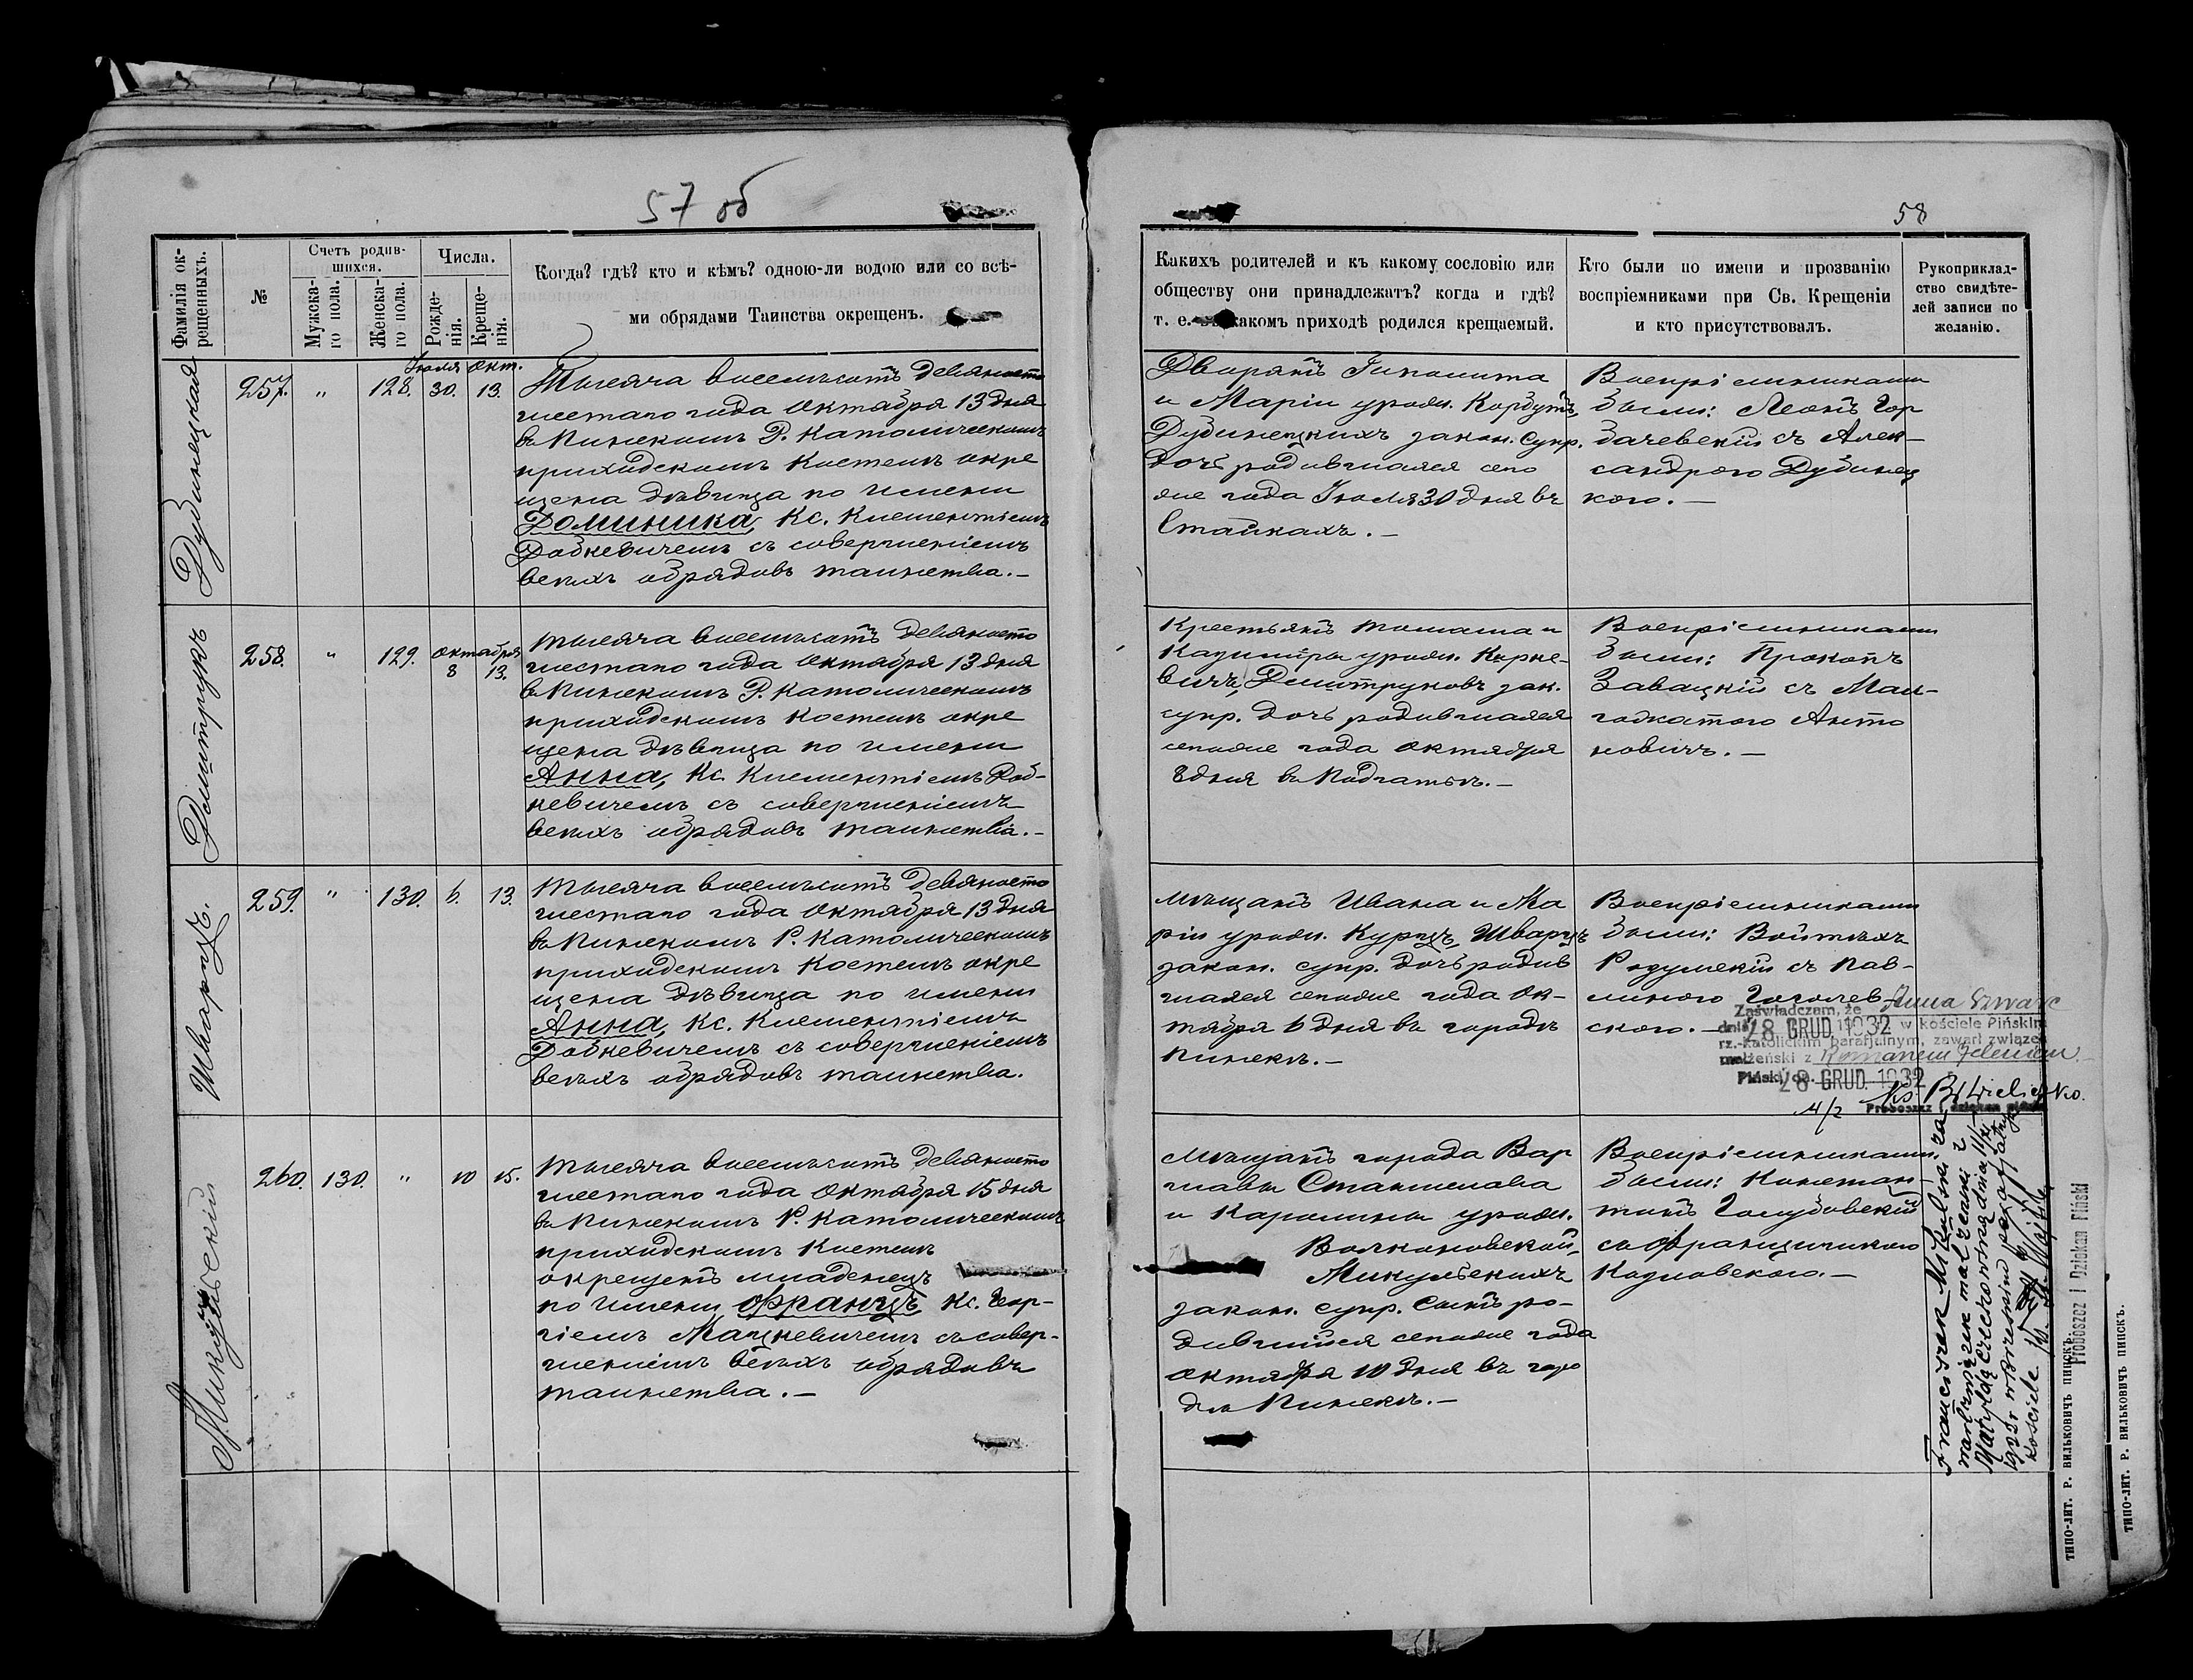 57 об
Фамилія ок-
рещенныхъ.
№
Счетъ родив-
шихся.
Мужска-
го пола.
Женска-
го пола.
Числа.
Рожде-
нія.
Креще-
нія.
Когда? гдѣ? кто и кѣмъ? одною-ли водою или со всѣ-
ми обрядами Таинства окрещенъ.
Дубинецкая
257. " 128. Іюля 30. Окт. 13.
Тысяча восемьсотъ девяносто
шестаго года Октября 13 дня
въ Пинскомъ Р. Католическомъ
приходскомъ костелѣ окре
щена дѣвица по имени
Доминика, Кс. Клементіемъ
Добкевичемъ съ совершеніемъ
всѣхъ обрядовъ таинства.–
Дмитрукъ
258. " 129. Октября 8 13.
Тысяча восемьсотъ девяносто
шестаго года Октября 13 дня
въ Пинскомъ Р. Католическомъ
приходскомъ костелѣ окре
щена дѣвица по имени
Анна, Кс. Клементіемъ Доб-
кевичемъ съ совершеніемъ
всѣхъ обрядовъ таинства.–
Шварцъ.
259. " 130. 6. 13.
Тысяча восемьсотъ девяносто
шестаго года Октября 13 дня
въ Пинскомъ Р. Католическомъ
приходскомъ костелѣ окре
щена дѣвица по имени
Анна, Кс. Клементіемъ
Добкевичемъ съ совершеніемъ
всѣхъ обрядовъ таинства.
Микульскій
260. 130. " 10 15.
Тысяча восемьсотъ девяносто
шестаго года Октября 15 дня
въ Пинскомъ Р. Католическомъ
приходскомъ костелѣ
окрещенъ младенецъ
по имени Францъ, Кс. Геор-
гіемъ Мацкевичемъ съ совер-
шеніемъ всѣхъ обрядовъ
таинства.–
58
Какихъ родителей и къ какому сословію или
обществу они принадлежатъ? когда и гдѣ?
т. е. какомъ приходѣ родился крещаемый.
Кто были по имени и прозванію
воспріемниками при Св. Крещеніи
и кто присутствовалъ.
Рукоприклад-
ство свидѣте-
лей записи по
желанію.
Дворянъ Гиполита
и Маріи урожд. Корбутъ,
Дубинецкихъ закон. супр.
дочь родившаяся сего
же года Іюля 30 дня въ
Стайкахъ.–
Воспріемниками
были: Леонъ Гор
бачевскій съ Алек-
сандрою Дубинец
кою.–
Крестьянъ Томаша и
Казиміры урожд. Карпо-
вичъ, Дмитруковъ зак.
супр. дочь родившаяся
сегоже года Октября
8 дня въ
Воспріемниками
были: Прокопъ
Завацкій съ Мал-
гожатою Анто
новичъ.–
Мѣщанъ Ивана и Ма
ріи урожд. Курцъ, Шварцъ
закон. супр. дочь родив
шаяся сегоже года Ок-
тября 6 дня въ городѣ
Пинскѣ.–
Воспріемниками
были: Войтѣхъ
Радумскій съ Пав-
линою Гоголев-
скою.–
Anna Szwarc
Zaświadczam, że
dnia 28 GRUD. 1932 w kościele Pińskim
rz.-katolickim parafjalnym, zawarł związek
małżeński z Romanem
Pińsk, dn. 28 GRUD. 1932
Proboszcz i dziekan piński
Мѣщанъ города Вар
шавы Станислава
и Каролины урожд.
Волкановской,
Микульскихъ
закон. супр. сынъ ро-
дившійся сегоже года
Октября 10 дня въ горо
дѣ Пинскѣ.–
Воспріемниками
были: Констан-
тинъ Голубовскій
съ Францишкою
Козловскою.–
Franciszek Mikulski za
warł związek małżeński z
Matyldą
kościele
Proboszcz i Dziekan Piński
ТИПО-ЛИТ. Р. ВИЛЬКОВИЧЪ ПИНСКЪ.
ТИПО-ЛИТ. Р. ВИЛЬКОВИЧЪ ПИНСКЪ.